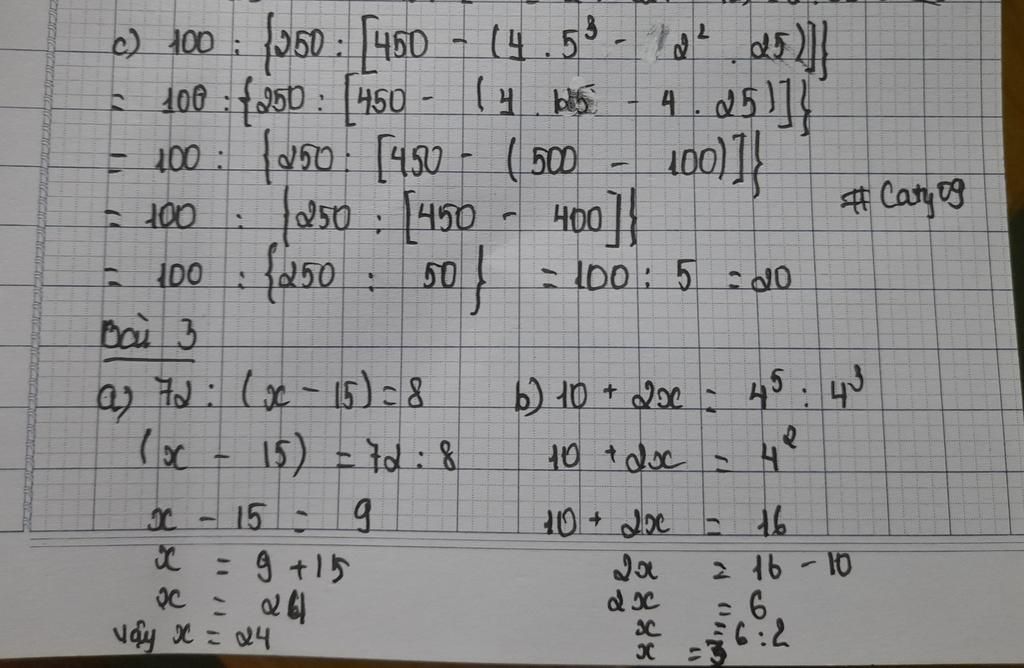 c) 100 : {250 : [450 - (4 . 5³ - 2² . 25)]}
= 100 : {250 : [450 - (4 . 125 - 4 . 25)]}
= 100 : {250 : [450 - (500 - 100)]}
# Caty09
= 100 : {250 : [450 - 400]}
= 100 : {250 : 50} = 100 : 5 = 20
Bài 3
a) 72 : (x - 15) = 8
(x - 15) = 72 : 8
x - 15 = 9
x = 9 + 15
x = 24
vậy x = 24
b) 10 + 2x = 4⁵ : 4³
10 + 2x = 4²
10 + 2x = 16
2x = 16 - 10
2x = 6
x = 6 : 2
x = 3